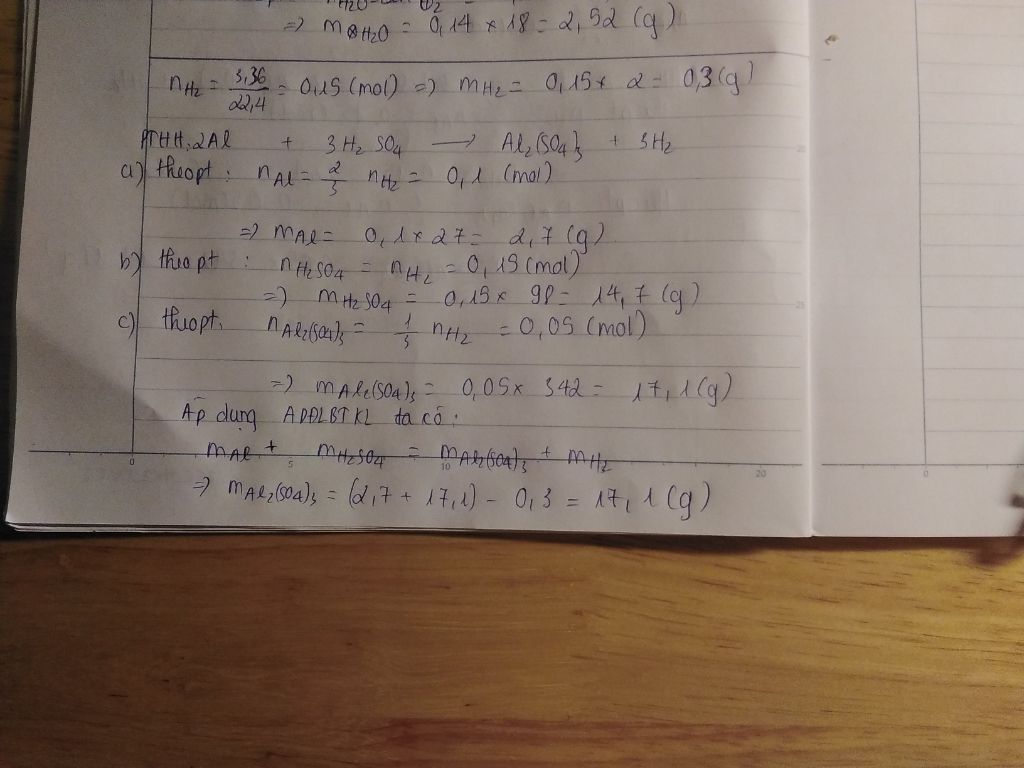 => mH2O = 0,14 × 18 = 2,52 (g)
nH2 = 3,36/22,4 = 0,15 (mol) => mH2 = 0,15 × 2 = 0,3 (g)
PTHH: 2Al + 3H2SO4 → Al2(SO4)3 + 3H2
a) theo pt : nAl = 2/3 nH2 = 0,1 (mol)
=> mAl = 0,1 × 27 = 2,7 (g)
b) theo pt : nH2SO4 = nH2 = 0,15 (mol)
=> mH2SO4 = 0,15 × 98 = 14,7 (g)
c) theo pt: nAl2(SO4)3 = 1/3 nH2 = 0,05 (mol)
=> mAl2(SO4)3 = 0,05 × 342 = 17,1 (g)
Áp dụng ADĐLBTKL ta có:
mAl + mH2SO4 = mAl2(SO4)3 + mH2
0 5 10 20 0
=> mAl2(SO4)3 = (2,7 + 17,1) - 0,3 = 17,1 (g)